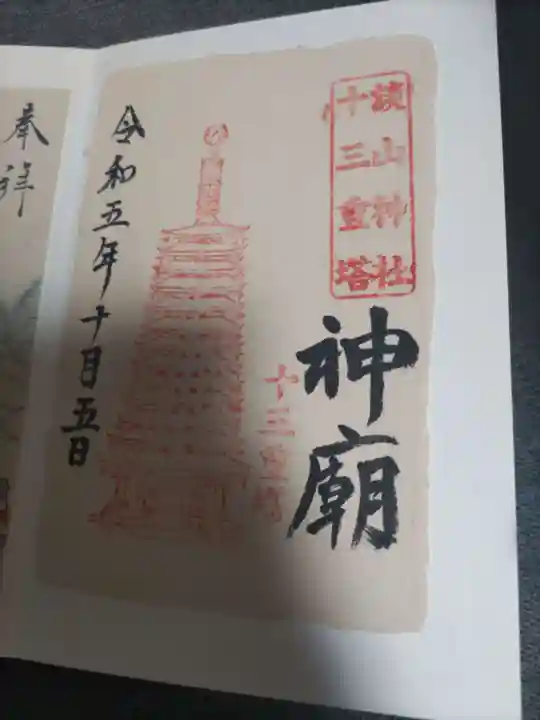 談山神社
十三重塔
神廟
十三重塔
令和五年十月五日
奉拝